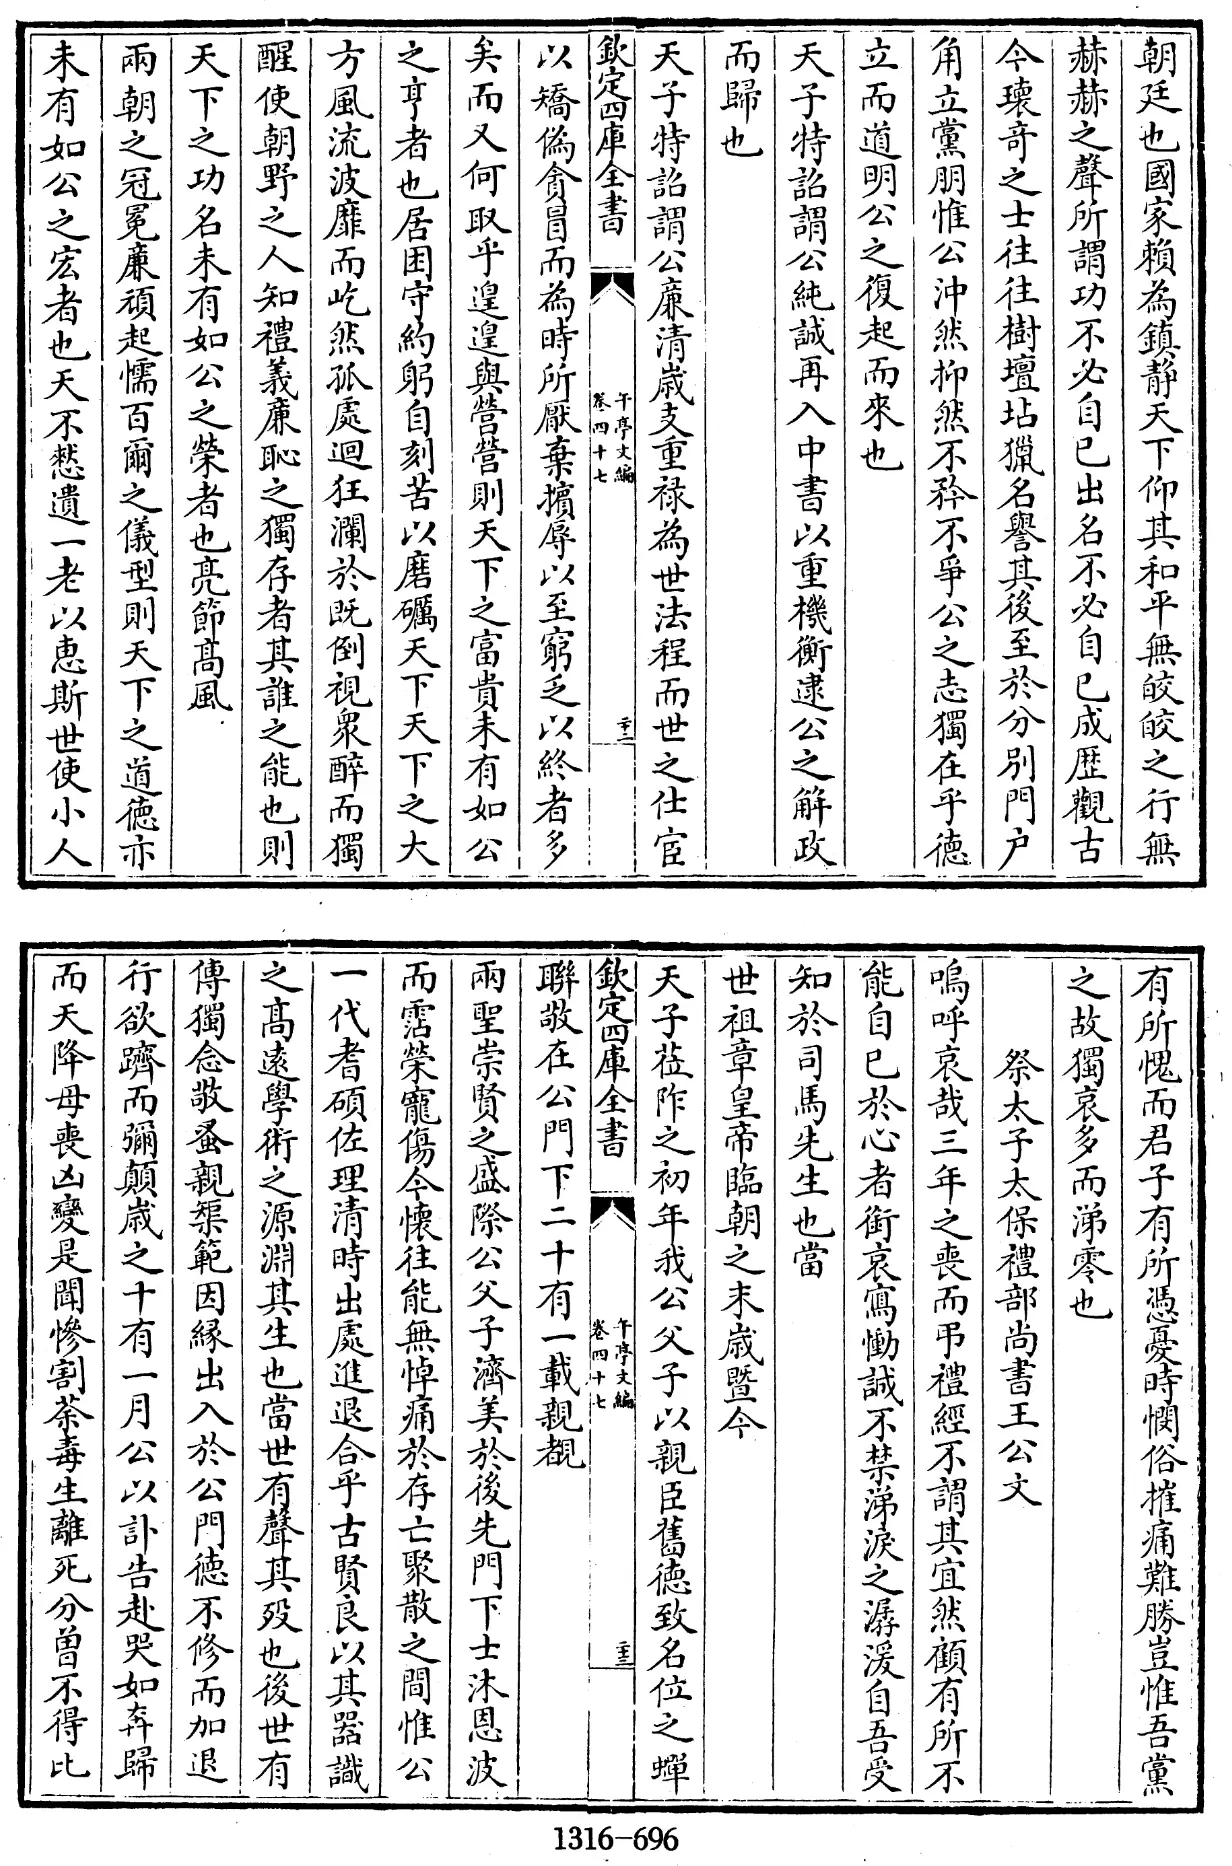 朝廷也國家賴為鎮靜天下仰其和平無皎皎之行無
赫赫之聲所謂功不必自已出名不必自已成歷觀古
今瓌奇之士往往樹壇坫獵名譽其後至於分別門户
角立黨朋惟公沖然抑然不矜不爭公之志獨在乎德
立而道明公之復起而來也
天子特詔謂公純誠再入中書以重機衡逮公之解政
而歸也
天子特詔謂公廉清歲支重祿為世法程而世之仕宦
欽定四庫全書
午亭文編
卷四十七
二十二
以矯偽貪冒而為時所厭棄擯辱以至窮乏以終者多
矣而又何取乎遑遑與營營則天下之富貴未有如公
之亨者也居困守約躬自刻苦以磨礪天下天下之大
方風流波靡而屹然孤處迴狂瀾於既倒視衆醉而獨
醒使朝野之人知禮義廉恥之獨存者其誰之能也則
天下之功名未有如公之榮者也亮節高風
兩朝之冠冕廉頑起懦百爾之儀型則天下之道德亦
未有如公之宏者也天不憗遺一老以惠斯世使小人
有所愧而君子有所憑憂時憫俗摧痛難勝豈惟吾黨
之故獨哀多而涕零也
祭太子太保禮部尚書王公文
嗚呼哀哉三年之喪而弔禮經不謂其宜然顧有所不
能自已於心者銜哀寫慟誠不禁涕淚之潺湲自吾受
知於司馬先生也當
世祖章皇帝臨朝之末歲暨今
天子莅阼之初年我公父子以親臣舊德致名位之蟬
欽定四庫全書
午亭文編
卷四十七
二十三
聯敬在公門下二十有一載親覩
兩聖崇賢之盛際公父子濟美於後先門下士沐恩波
而霑榮寵傷今懷往能無悼痛於存亡聚散之間惟公
一代耆碩佐理清時出處進退合乎古賢良以其器識
之高遠學術之源淵其生也當世有聲其歿也後世有
傳獨念敬蚤親榘範因緣出入於公門德不修而加退
行欲躋而彌顛歲之十有一月公以訃告赴哭如奔歸
而天降母喪凶變是聞慘割荼毒生離死分曾不得比
1316-696